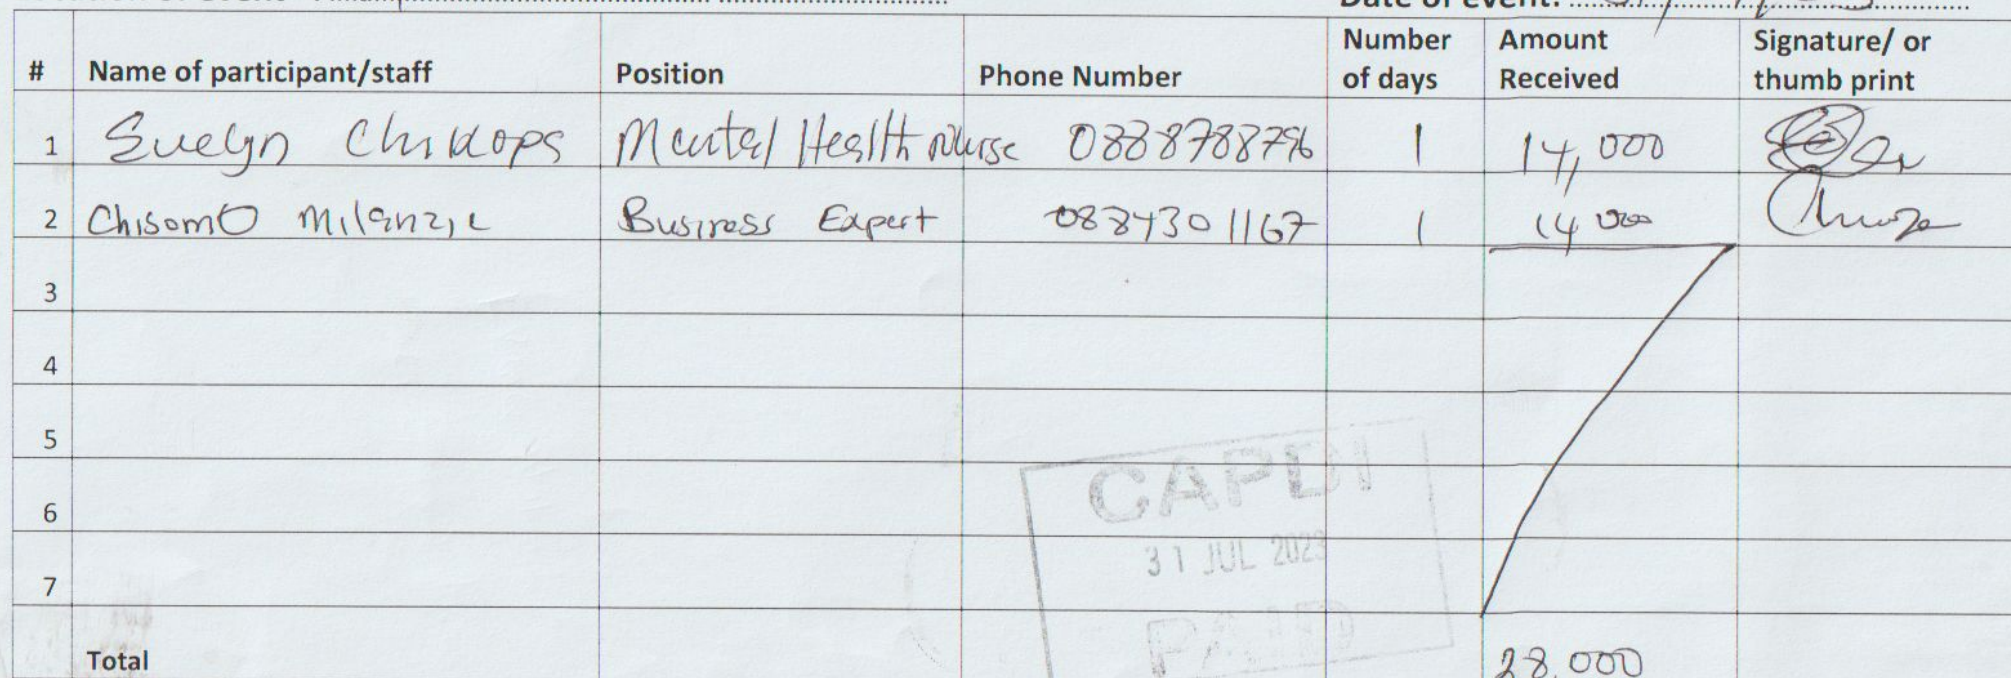 Date of event:
# Name of participant/staff Position Phone Number Number of days Amount Received Signature/ or thumb print
1 Evelyn Chikaops Mental Health Nurse 0888788796 1 14,000
2 Chisomo Milanzie Business Expert 0884301167 1 14 000
3
4
5
CAPDI
6
31 JUL 2023
7
PAID
Total 28,000